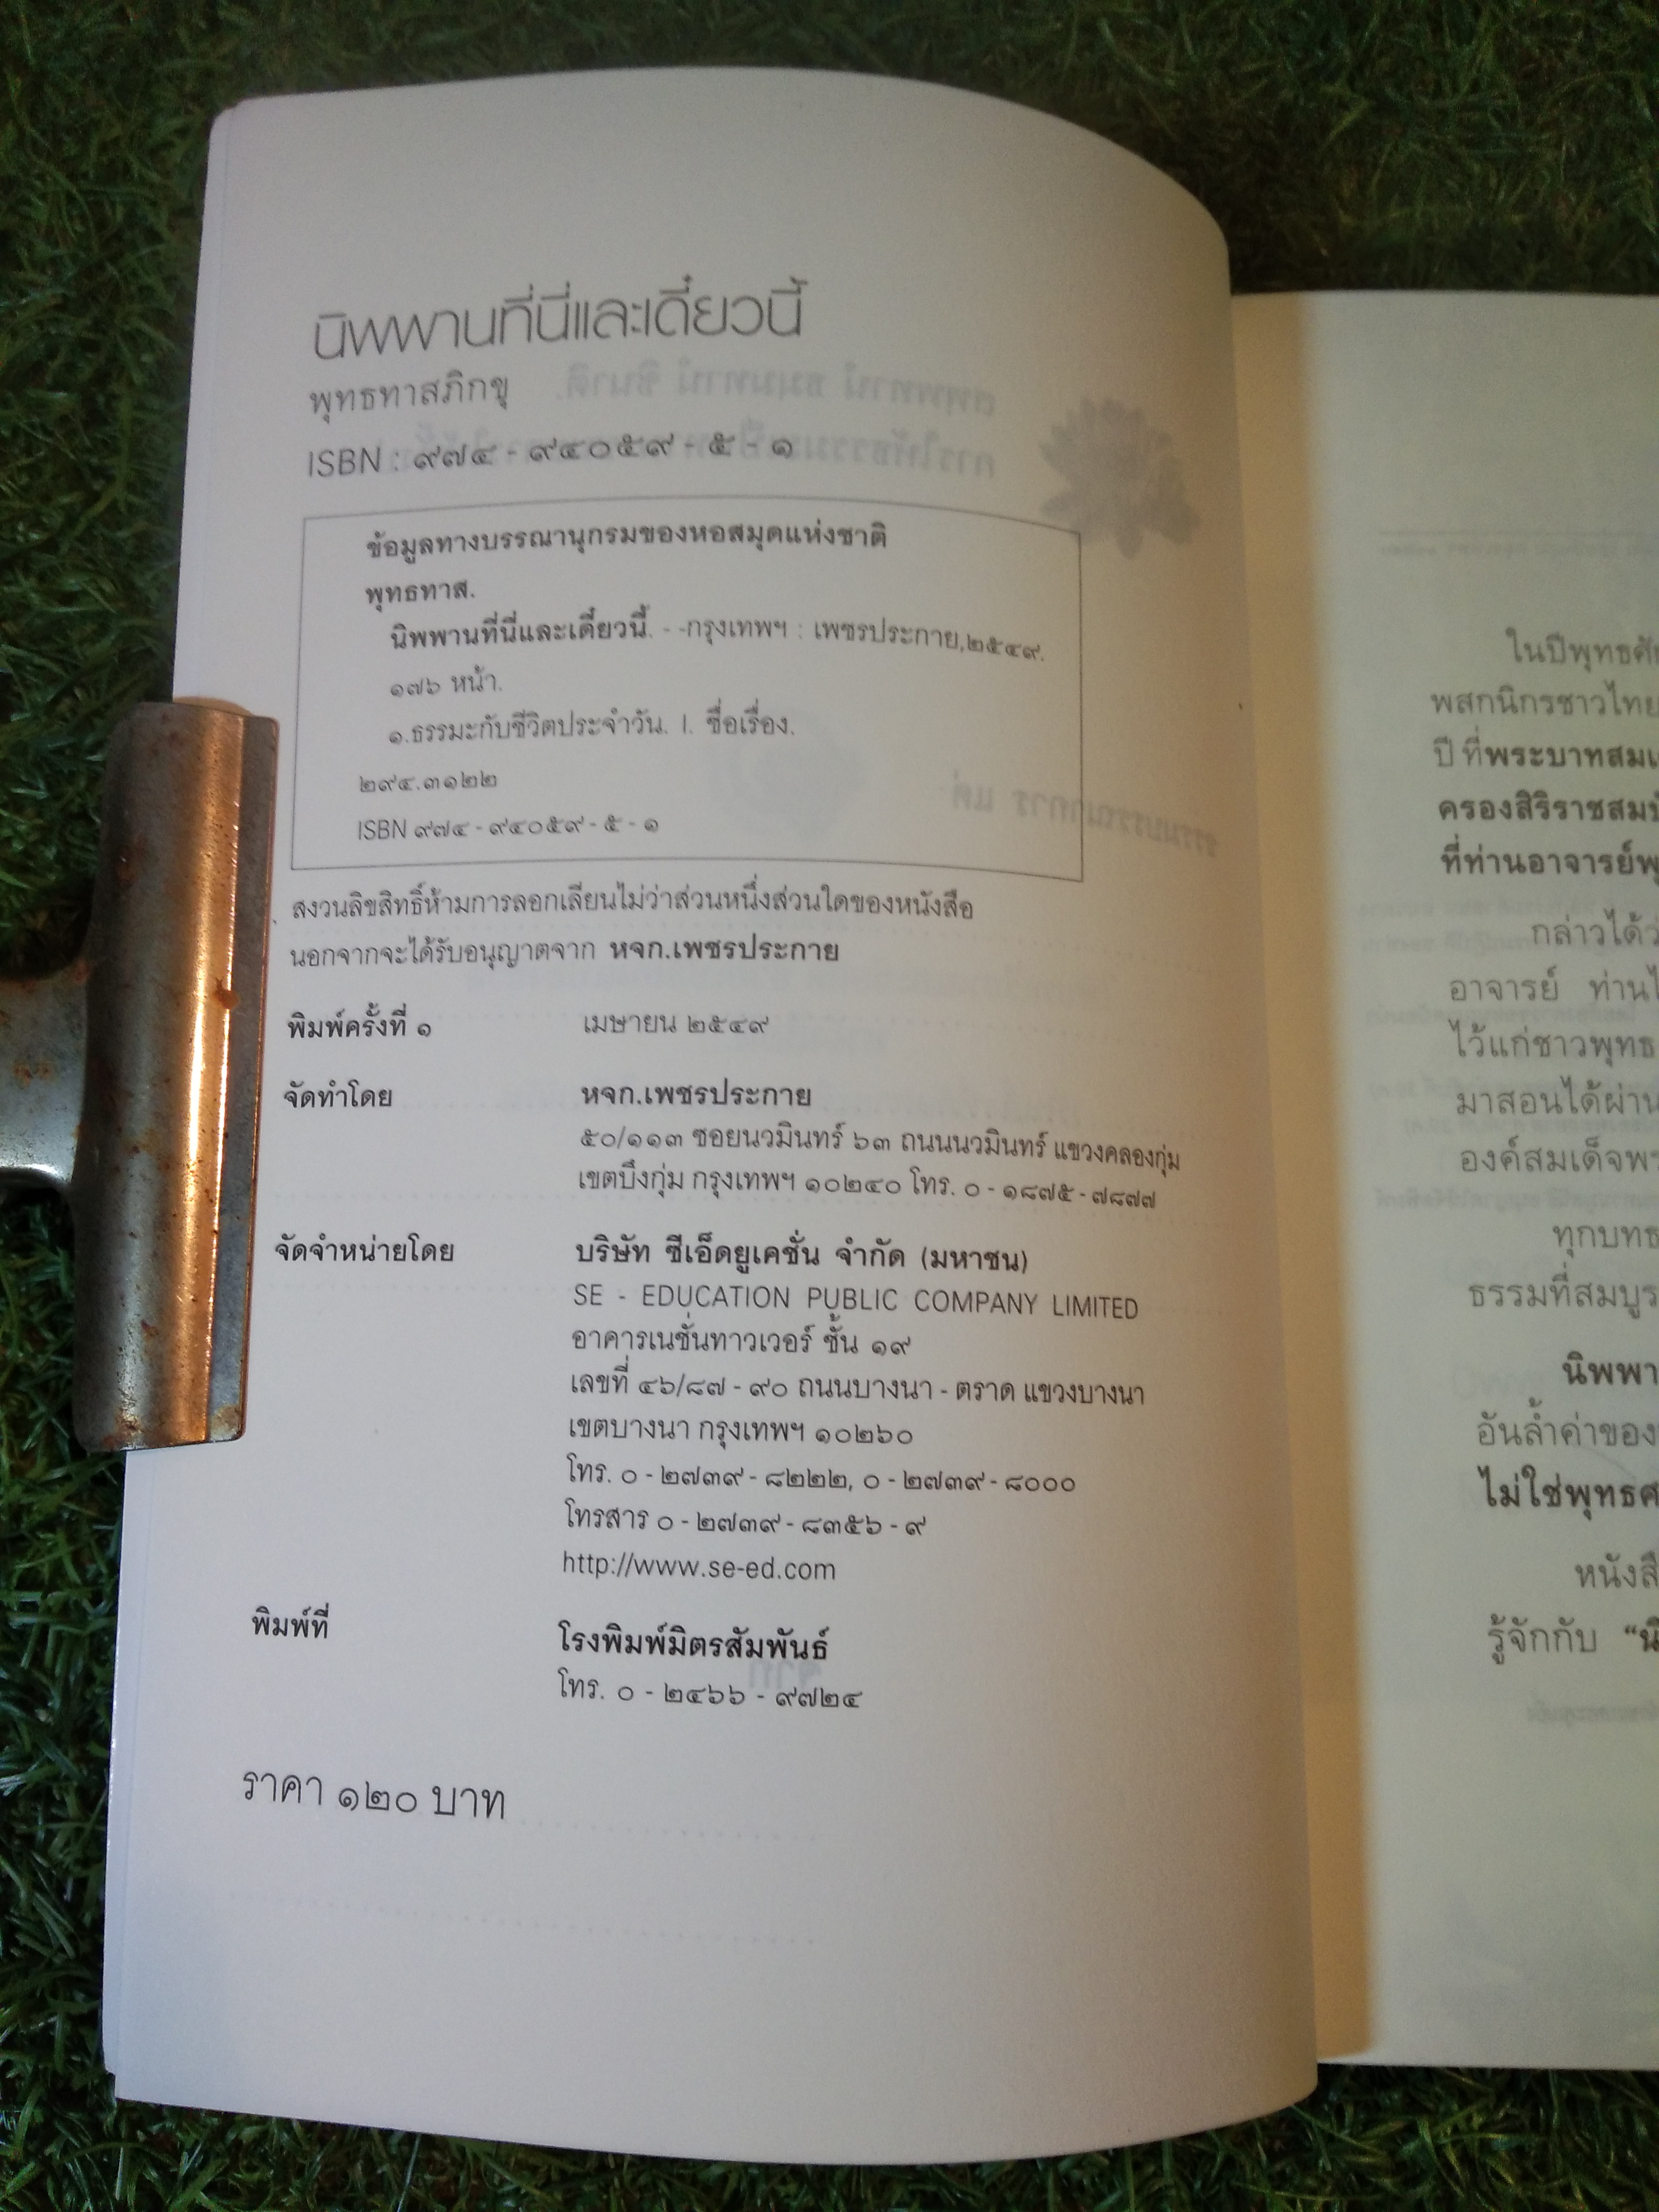 นิพพานที่นี่และเดี๋ยวนี้
พุทธทาสภิกขุ
ISBN : ๙๗๔ - ๙๔๐๕๙ - ๕ - ๑
ข้อมูลทางบรรณานุกรมของหอสมุดแห่งชาติ
พุทธทาส.
นิพพานที่นี่และเดี๋ยวนี้. - -กรุงเทพฯ : เพชรประกาย,๒๕๔๙.
๑๗๖ หน้า.
๑.ธรรมะกับชีวิตประจำวัน. I. ชื่อเรื่อง.
๒๙๔.๓๑๒๒
ISBN ๙๗๔ - ๙๔๐๕๙ - ๕ - ๑
สงวนลิขสิทธิ์ห้ามการลอกเลียนไม่ว่าส่วนหนึ่งส่วนใดของหนังสือ
นอกจากจะได้รับอนุญาตจาก หจก.เพชรประกาย
พิมพ์ครั้งที่ ๑ เมษายน ๒๕๔๙
จัดทำโดย หจก.เพชรประกาย
๕๐/๑๑๓ ซอยนวมินทร์ ๖๓ ถนนนวมินทร์ แขวงคลองกุ่ม
เขตบึงกุ่ม กรุงเทพฯ ๑๐๒๔๐ โทร. ๐ - ๑๘๗๕ - ๗๘๗๗
จัดจำหน่ายโดย บริษัท ซีเอ็ดยูเคชั่น จำกัด (มหาชน)
SE - EDUCATION PUBLIC COMPANY LIMITED
อาคารเนชั่นทาวเวอร์ ชั้น ๑๙
เลขที่ ๔๖/๘๗ - ๙๐ ถนนบางนา - ตราด แขวงบางนา
เขตบางนา กรุงเทพฯ ๑๐๒๖๐
โทร. ๐ - ๒๗๓๙ - ๘๒๒๒, ๐ - ๒๗๓๙ - ๘๐๐๐
โทรสาร ๐ - ๒๗๓๙ - ๘๓๕๖ - ๙
http://www.se-ed.com
พิมพ์ที่ โรงพิมพ์มิตรสัมพันธ์
โทร. ๐ - ๒๔๖๖ - ๙๗๒๔
ราคา ๑๒๐ บาท
ในปีพุทธศั
พสกนิกรชาวไทย
ปี ที่พระบาทสมเ
ครองสิริราชสมบั
ที่ท่านอาจารย์พุ
กล่าวได้ว่
อาจารย์ ท่านไ
ไว้แก่ชาวพุทธ
มาสอนได้ผ่าน
องค์สมเด็จพร
ทุกบทธ
ธรรมที่สมบูร
นิพพา
อันล้ำค่าของ
ไม่ใช่พุทธศ
หนังสื
รู้จักกับ “นิ